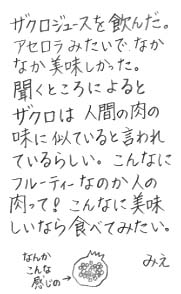 ザクロジュースを飲んだ。
アセロラみたいで、なか
なか美味しかった。
聞くところによると
ザクロは人間の肉の
味に似ていると言われ
ているらしい。こんなに
フルーティーなのか人の
肉って! こんなに美味
しいなら食べてみたい。
なんか
こんな
感じの→
みえ